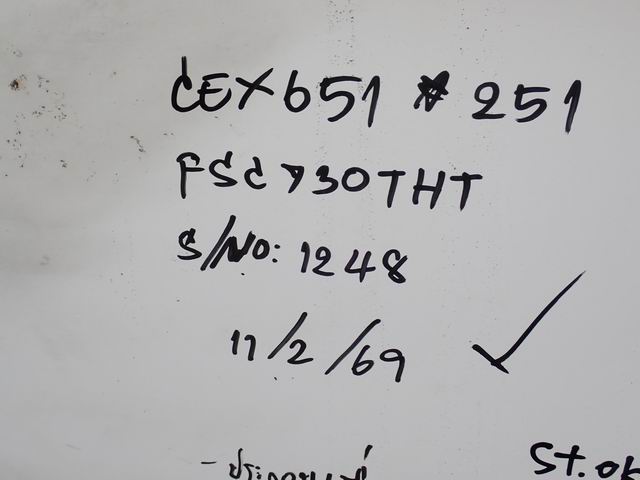 CEX651 # 251
FSC 730THT
S/NO: 1248
11/2/69 ✓